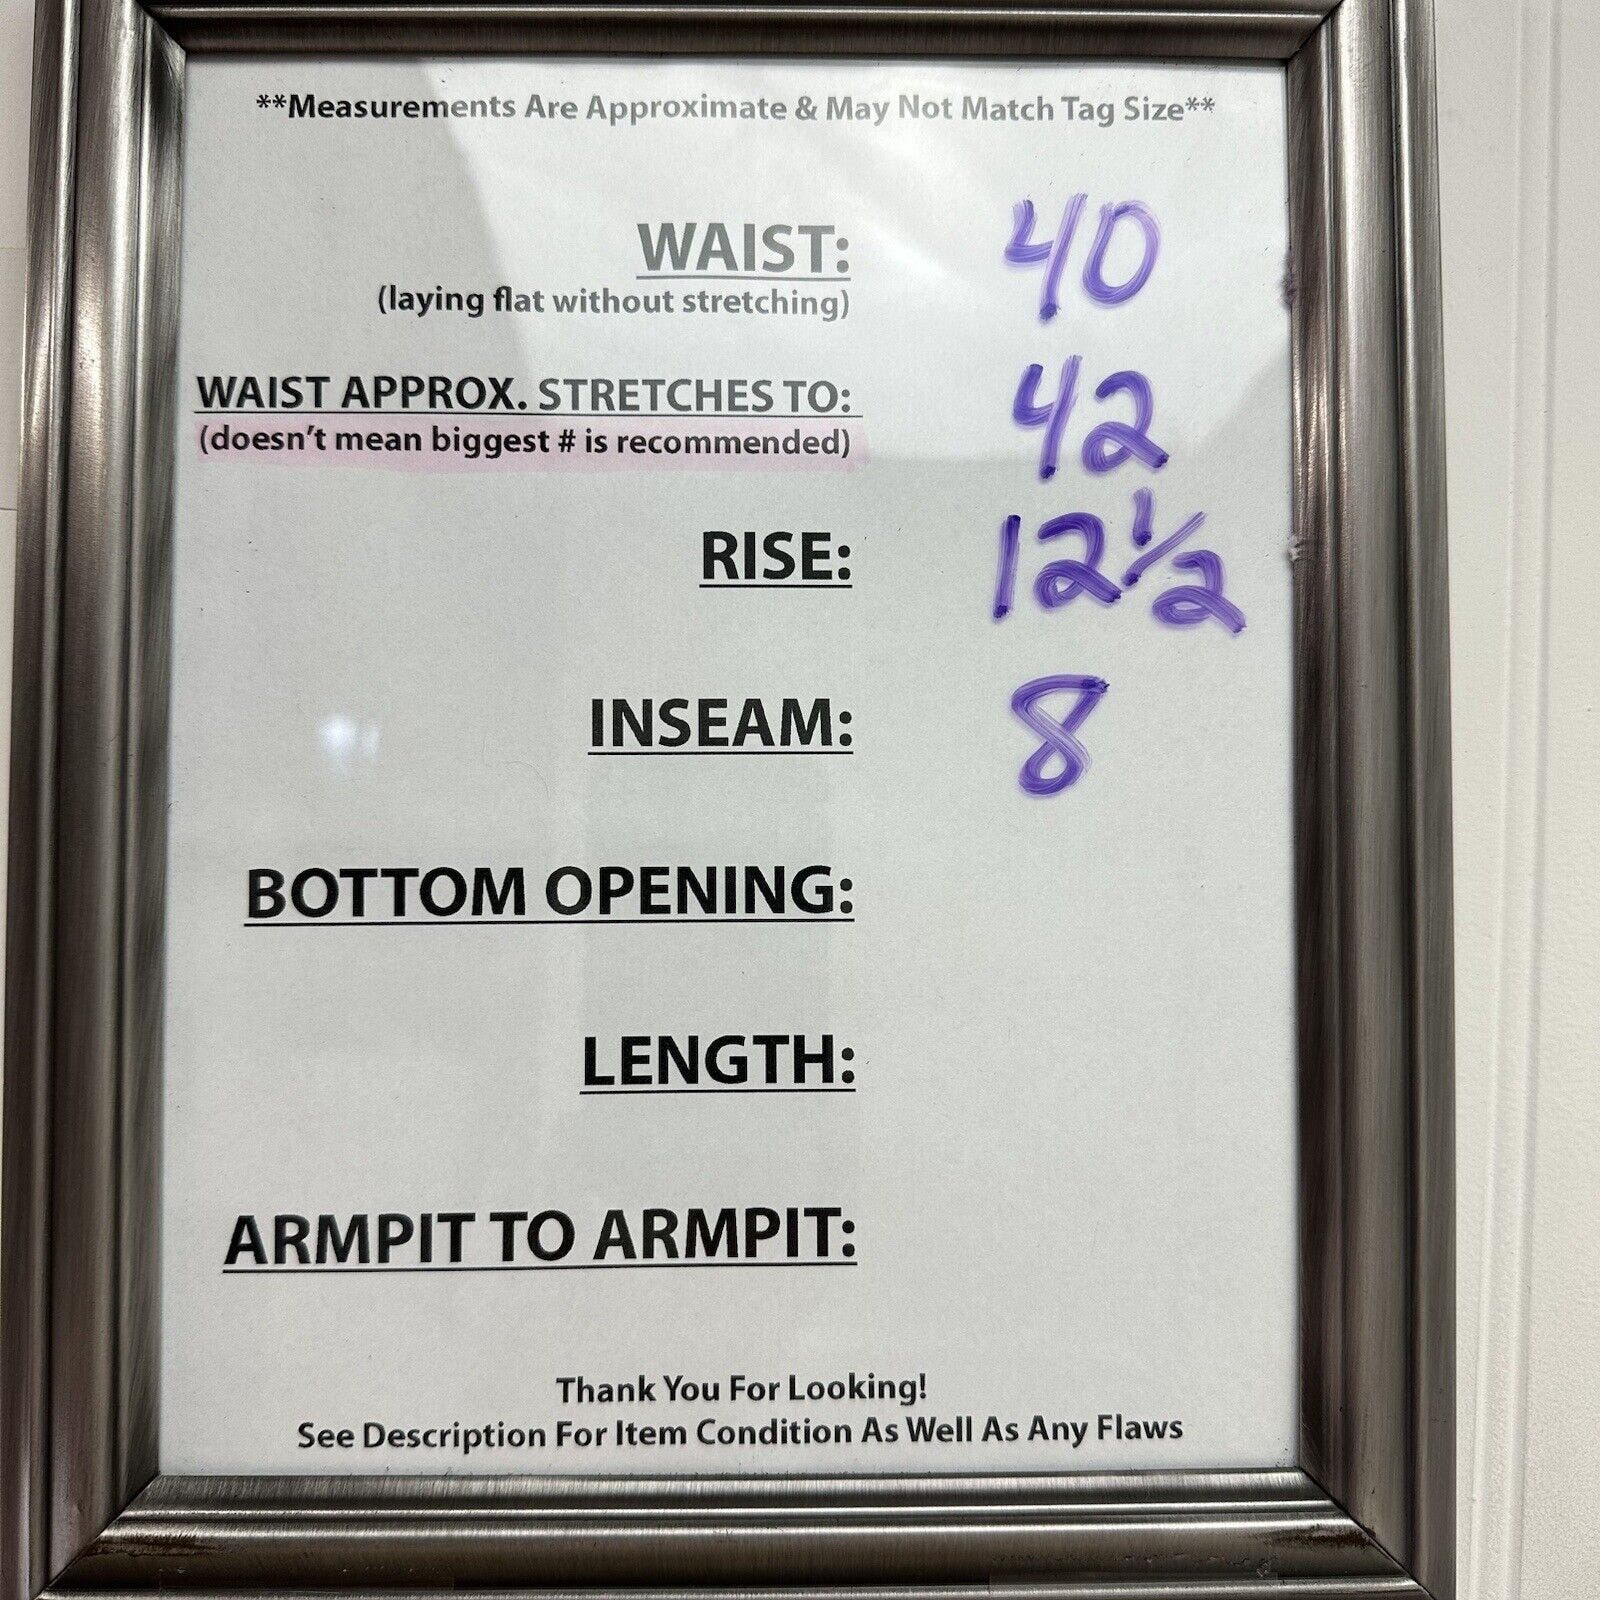 **Measurements Are Approximate & May Not Match Tag Size**
WAIST: 40
(laying flat without stretching)
WAIST APPROX. STRETCHES TO: 42
(doesn't mean biggest # is recommended)
RISE: 12 1/2
INSEAM: 8
BOTTOM OPENING:
LENGTH:
ARMPIT TO ARMPIT:
Thank You For Looking!
See Description For Item Condition As Well As Any Flaws